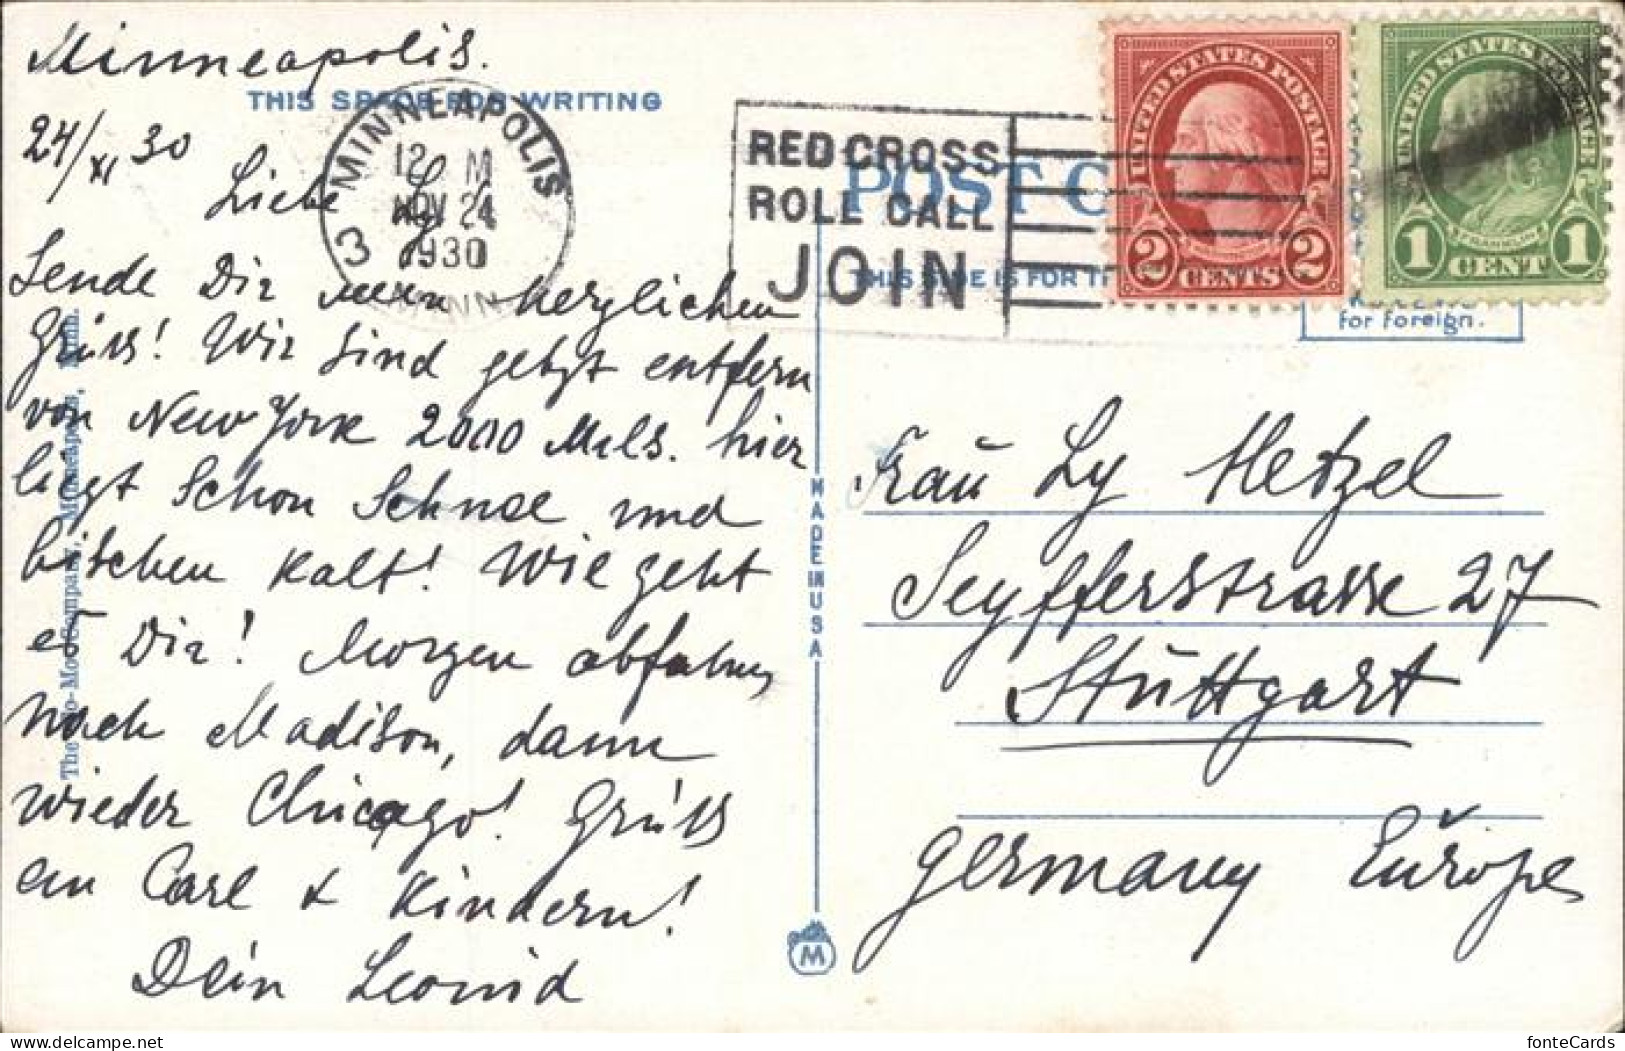 Minneapolis.
THIS SPACE FOR WRITING
24/XI 30
Liebe Ly
Sende Dir herzlichen
Grüss! Wir sind getzt entfern
von New York 2000 Mils. hier
ligt Schon Schnee und
bischen Kalt! Wie geht
es Dir! Morgen abfahren
nach Madison, dann
wieder Chicago! Grüss
an Carl & Kindern!
Dein Leonid
MINNEAPOLIS
3 MINN
12 M
NOV 24
1930
RED CROSS
ROLL CALL
JOIN
POST C
THIS SIDE IS FOR TH
UNITED STATES POSTAGE
2 CENTS 2
UNITED STATES POSTAGE
FRANKLIN
1 CENT 1
for foreign.
Frau Ly Hetzel
Seyfferstrasse 27
Stuttgart
Germany Europe
MADE IN USA
The Co-Mo Company, Minneapolis, Minn.
M
fonteCards